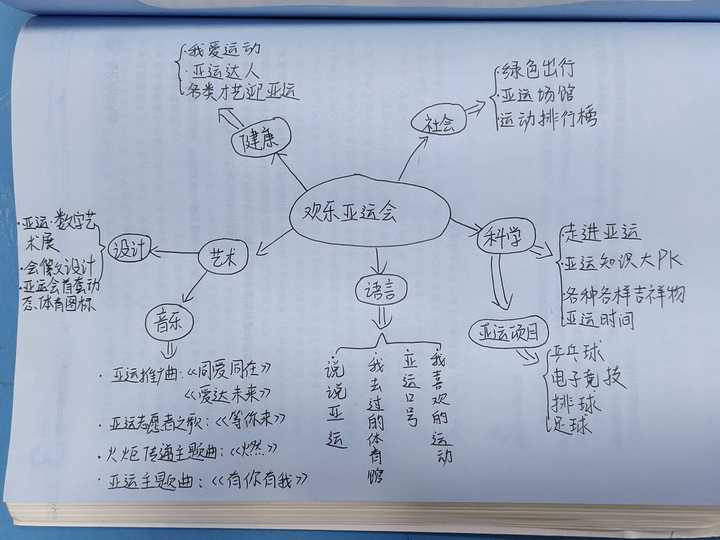 欢乐亚运会
健康
·我爱运动
·亚运达人
·各类才艺迎亚运
社会
·绿色出行
·亚运场馆
·运动排行榜
科学
·走进亚运
·亚运知识大PK
·各种各样吉祥物
亚运时间
亚运项目
乒乓球
电子竞技
排球
足球
语言
说说亚运
我去过的体育馆
亚运口号
我喜欢的运动
艺术
设计
·亚运·数字艺
术展
·会徽设计
·亚运会首套动
态体育图标
音乐
·亚运推广曲:《同爱同在》
《爱达未来》
·亚运志愿者之歌:《等你来》
·火炬传递主题曲:《燃》
·亚运主题曲:《有你有我》